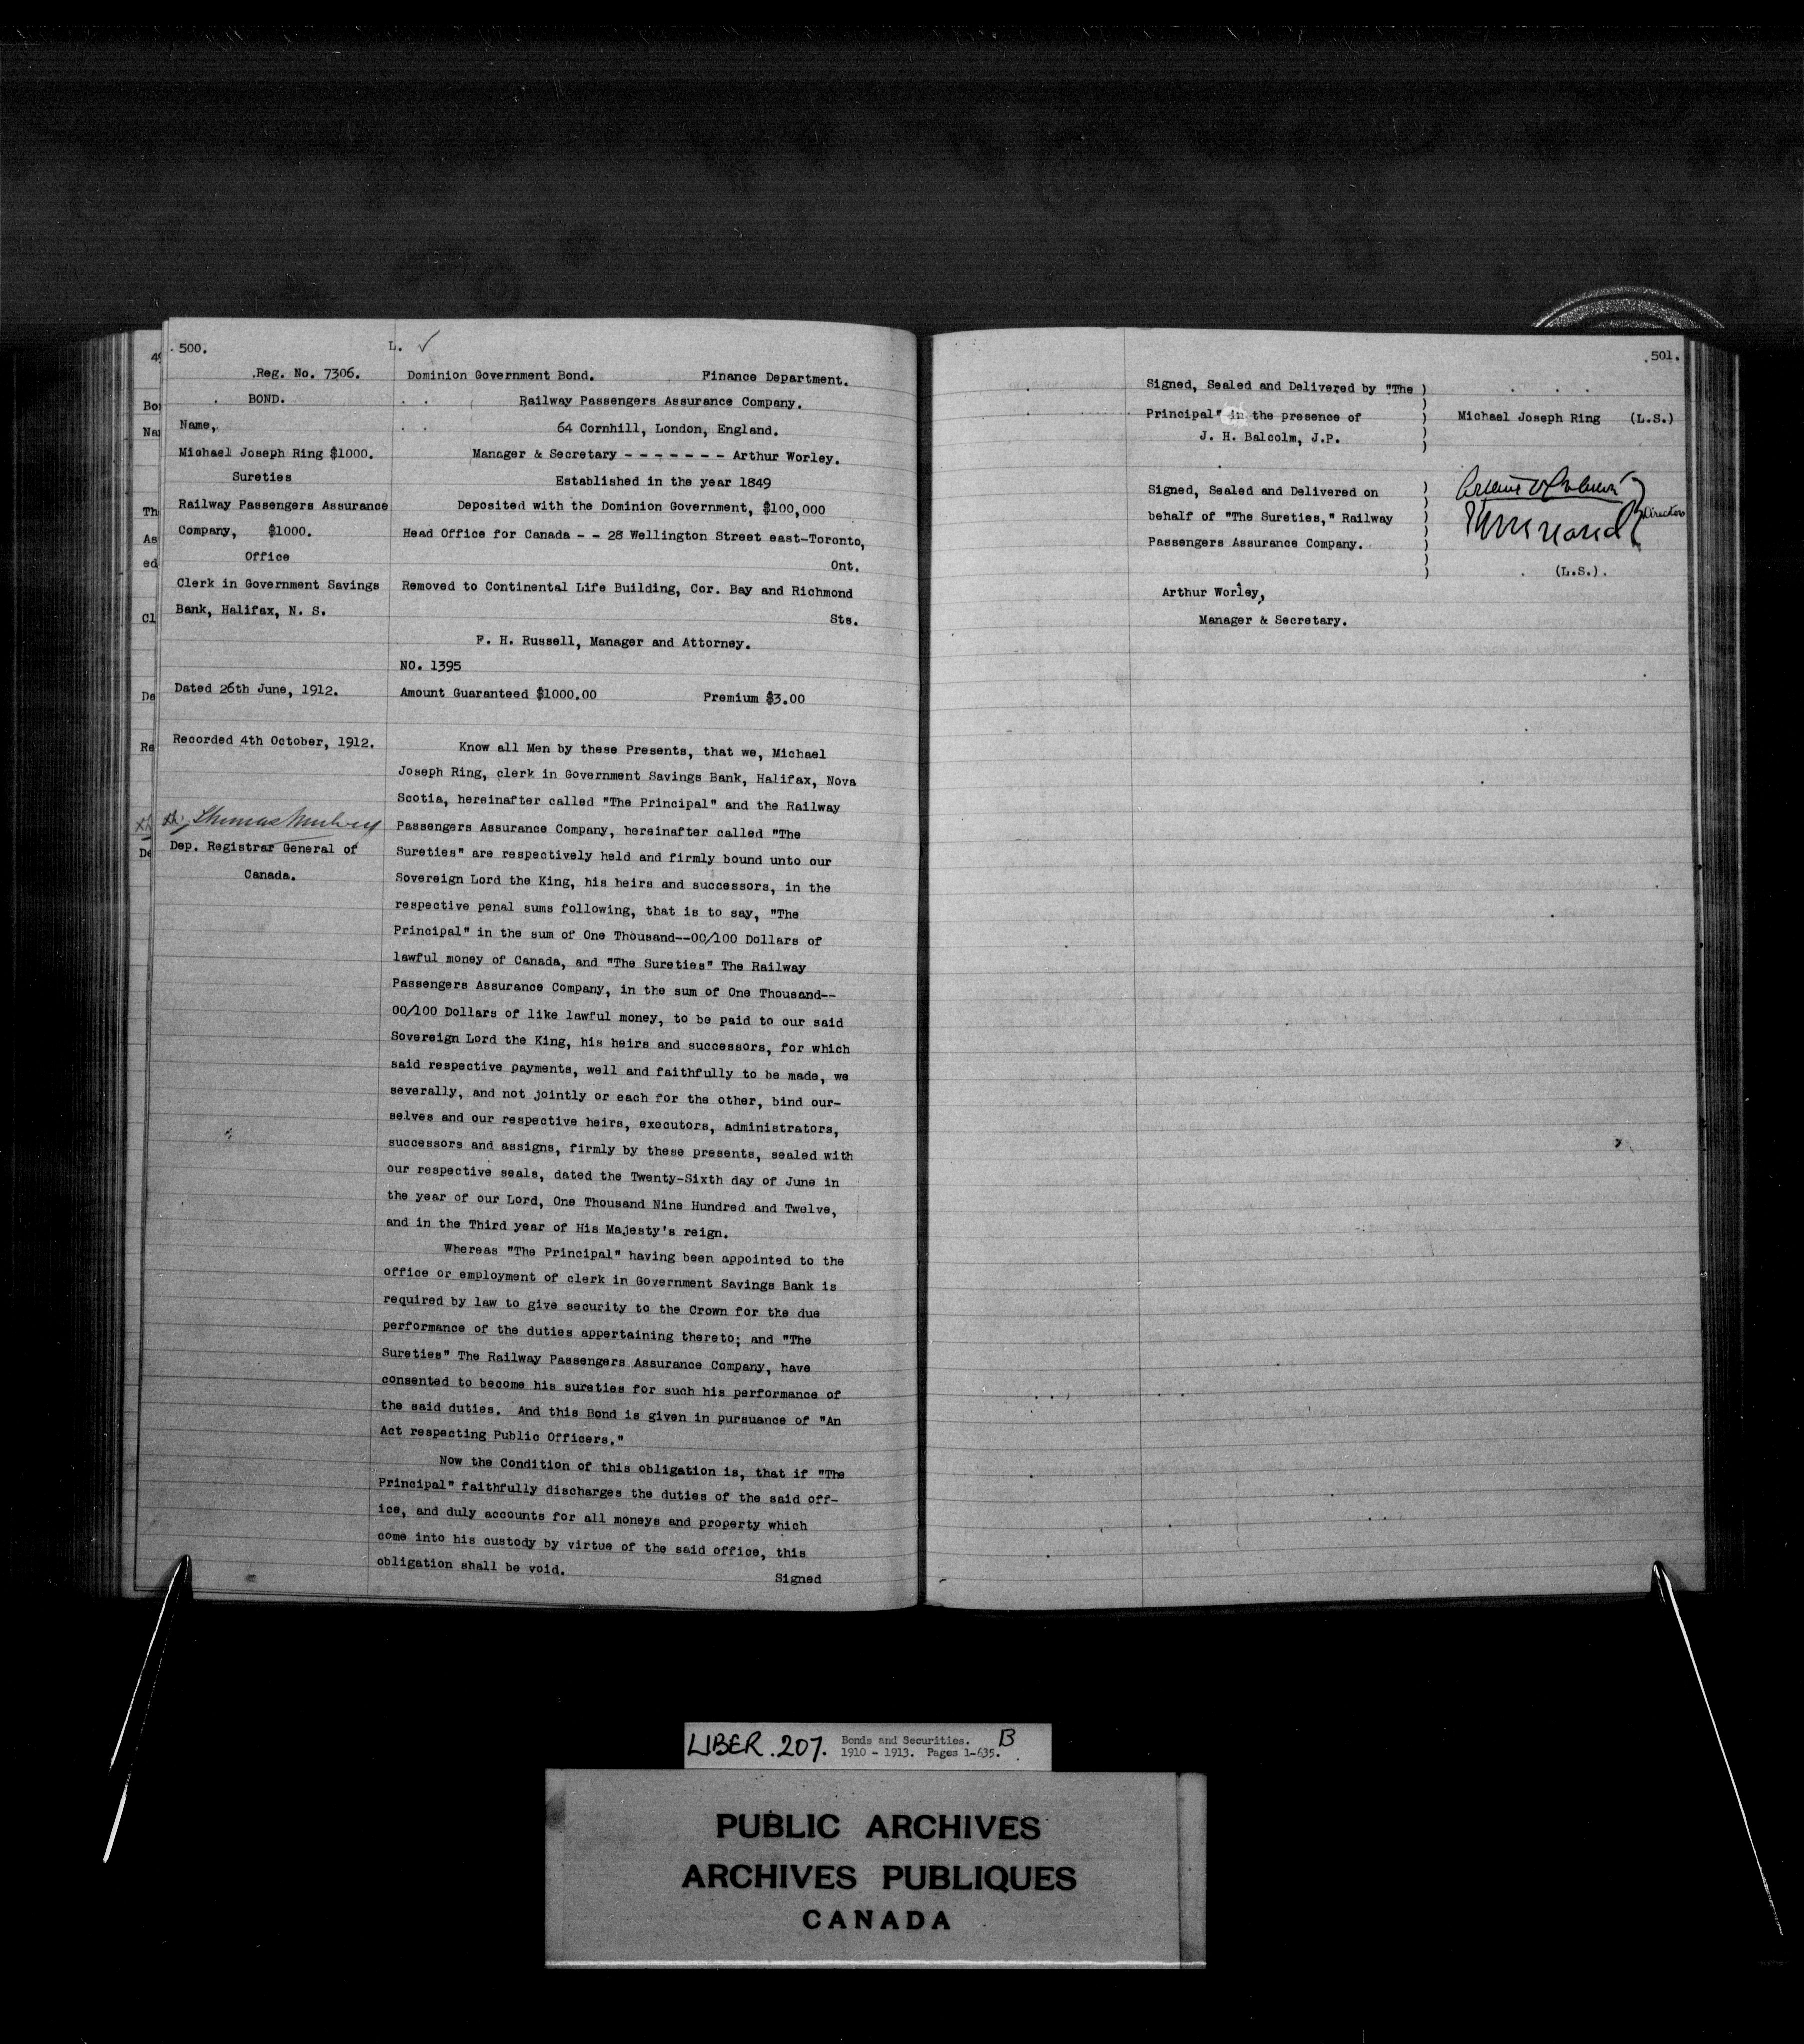 500.
L. ✓
Reg. No. 7306.
BOND.
Name,
Michael Joseph Ring $1000.
Sureties
Railway Passengers Assurance
Company, $1000.
Office
Clerk in Government Savings
Bank, Halifax, N. S.
Dated 26th June, 1912.
Recorded 4th October, 1912.
Thomas Mulvey
Dep. Registrar General of
Canada.
Dominion Government Bond. Finance Department.
Railway Passengers Assurance Company.
64 Cornhill, London, England.
Manager & Secretary - - - - - - - Arthur Worley.
Established in the year 1849
Deposited with the Dominion Government, $100,000
Head Office for Canada - - 28 Wellington Street east-Toronto,
Ont.
Removed to Continental Life Building, Cor. Bay and Richmond
Sts.
F. H. Russell, Manager and Attorney.
NO. 1395
Amount Guaranteed $1000.00 Premium $3.00
Know all Men by these Presents, that we, Michael
Joseph Ring, clerk in Government Savings Bank, Halifax, Nova
Scotia, hereinafter called "The Principal" and the Railway
Passengers Assurance Company, hereinafter called "The
Sureties" are respectively held and firmly bound unto our
Sovereign Lord the King, his heirs and successors, in the
respective penal sums following, that is to say, "The
Principal" in the sum of One Thousand--00/100 Dollars of
lawful money of Canada, and "The Sureties" The Railway
Passengers Assurance Company, in the sum of One Thousand--
00/100 Dollars of like lawful money, to be paid to our said
Sovereign Lord the King, his heirs and successors, for which
said respective payments, well and faithfully to be made, we
severally, and not jointly or each for the other, bind our-
selves and our respective heirs, executors, administrators,
successors and assigns, firmly by these presents, sealed with
our respective seals, dated the Twenty-Sixth day of June in
the year of our Lord, One Thousand Nine Hundred and Twelve,
and in the Third year of His Majesty's reign.
Whereas "The Principal" having been appointed to the
office or employment of clerk in Government Savings Bank is
required by law to give security to the Crown for the due
performance of the duties appertaining thereto; and "The
Sureties" The Railway Passengers Assurance Company, have
consented to become his sureties for such his performance of
the said duties. And this Bond is given in pursuance of "An
Act respecting Public Officers."
Now the Condition of this obligation is, that if "The
Principal" faithfully discharges the duties of the said off-
ice, and duly accounts for all moneys and property which
come into his custody by virtue of the said office, this
obligation shall be void.
Signed
501.
Signed, Sealed and Delivered by "The )
Principal" in the presence of ) Michael Joseph Ring (L.S.)
J. H. Balcolm, J.P. )
Signed, Sealed and Delivered on )
behalf of "The Sureties," Railway ) Directors
Passengers Assurance Company. )
(L.S.).
Arthur Worley,
Manager & Secretary.
LIBER. 207. Bonds and Securities. B
1910 - 1913. Pages 1-635.
PUBLIC ARCHIVES
ARCHIVES PUBLIQUES
CANADA